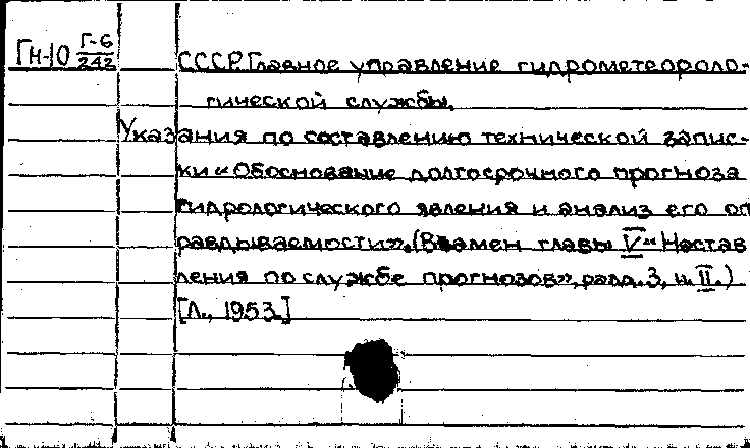 Гн-10 Г-6/242 СССР. Главное управление гидрометеороло-
гической службы.
Указания по составлению технической запис-
ки «Обоснование долгосрочного прогноза
гидрологического явления и анализ его оп
равдываемости». (Взамен главы V «Настав
ления по службе прогнозов», разд. 3, ч. II.)
[Л., 1953.]